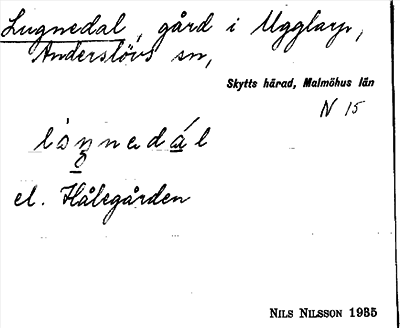 Lugnedal, gård i Ugglarp,
Anderslövs sn,
Skytts härad, Malmöhus län
N 15
el. Hålegården
NILS NILSSON 1935